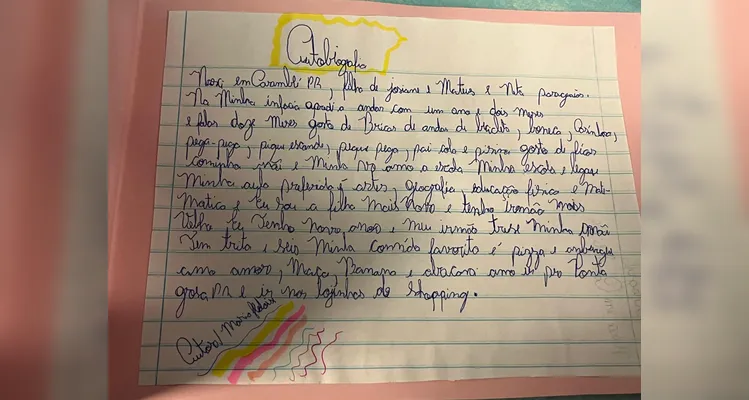 Autobiografia
Nasci em Carambeí PR, filha de josiane e Mateus e Neta paraguaios.
Na Minha infacia aprendi a andar com um ano e dois meses
e falar doze meses gosto de Bricar de andar de bicicleta, boneca, Corinhoa,
pega-pega, pique esconde, pique pega, pai cola e piscina gosto de ficar
comminha mãi e Minha vó amo a escola Minha escola e legau
Minha aula preferida é artes, geografia, educação fisica e Mate-
Matica e Eu sou a filha Mais Nova e tenho irmão mais
Velho Eu Tenho nove anos e meu irmão trese Minha mãi
Tem trita e seis Minha comida favorita é pizza e
amo amor, Maça, Banana e abacaxi amo ir pro Ponta
grosa PR e ir nas lojinhas do shopping.
Autora: